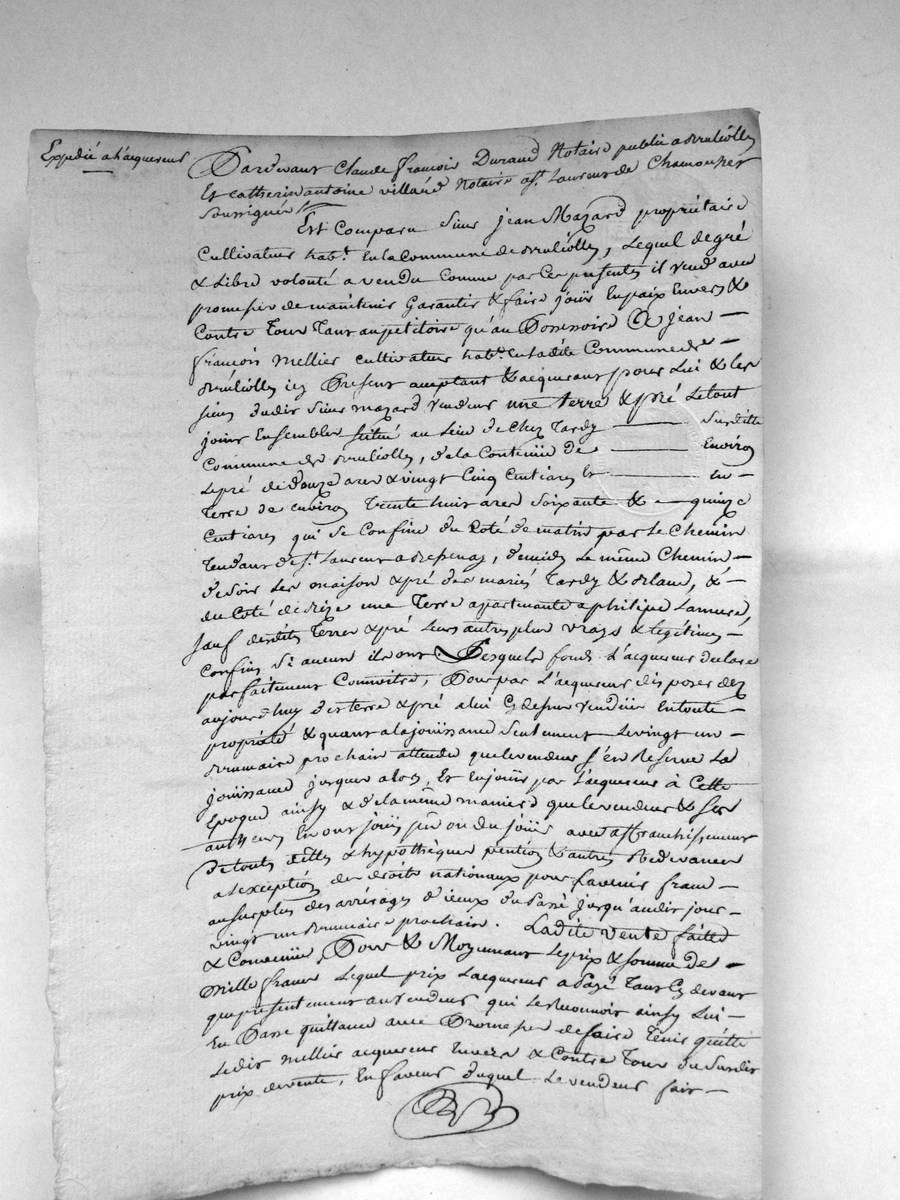 Expedié a l'acquereur
Pardevant Claude François Durand Notaire public a Brulliolles
Et Catherin antoine villard Notaire a St Laurent de Chamousset
soussignés
Est Comparu Sieur jean Mazard propriétaire
Cultivateur habt. En la Commune de Brulliolles, Lequel de gré
& Libre volonté a vendu Comme par Ces présentes il vend avec
promesse de maintenir Garantir & faire joüir En paix Envers &
Contre Tous Tant au petitoire qu'au Possessoire A jean –
françois mellier cultivateur habt. En ladite Commune de –
Brulliolles icy Present acceptant & acquerant pour Lui & les
siens dudit Sieur mazard vendeur une terre & pré Le tout
joint Ensembles situé au Lieu de Chez Tardy —— Susditte
Commune de Brulliolles, de la Contenüe de —— Environ
Le pré de douze ares & vingt Cinq Centiares Et —— la
Terre de environ Trente huit ares Soixante & – quinze
Centiares qui se Confine du Coté de matin par le Chemin
Tendant de St. Laurent a Bessenay, de midy Le même Chemin –
de soir Les maison & pré des mariés Tardy & Orland, & –
du Coté de Bize une Terre apartenante a philipe Lamure,
sauf desdits Terre & pré Leurs autres plus vrays & Legitimes –
Confins Si aucuns ils ont. Desquels fonds L'acquereur declare
parfaitement Connoitre, Pour par L'acquereur disposer dez
aujourd'huy des terre & pré a lui Cy dessus vendüe En toute –
propriété & quant a la joüissance Seulement Le vingt un –
Brumaire prochain attendu que le vendeur s'en Reserve La
joüissance jusques alors, Et En joüir par L'acquereur à Cette
Epoque ainsy & de la même maniere que le vendeur & ses
autheurs En ont joüis pû ou du joüir avec affranchissement
de touts dettes & hypothèques pention & autres Redevances
a L'exception des droits nationaux pour L'avenir franc –
au surplus des arrérages d'iceux du Passé jusqu'audit jour –
vingt un Brumaire prochain. Ladite vente faitte
& Convenüe, Pour & Moyennant Le prix & somme de –
Mille francs Lequel prix L'acquereur a Payé Tant Cy devant
que présentement au vendeur qui Le Reconnoit ainsy Lui –
En Passe quittance avec Promesse de faire Tenir quitte
Ledit mellier acquereur Envers & Contre Tous du Susdit
prix de vente, En faveur duquel Le vendeur fait –